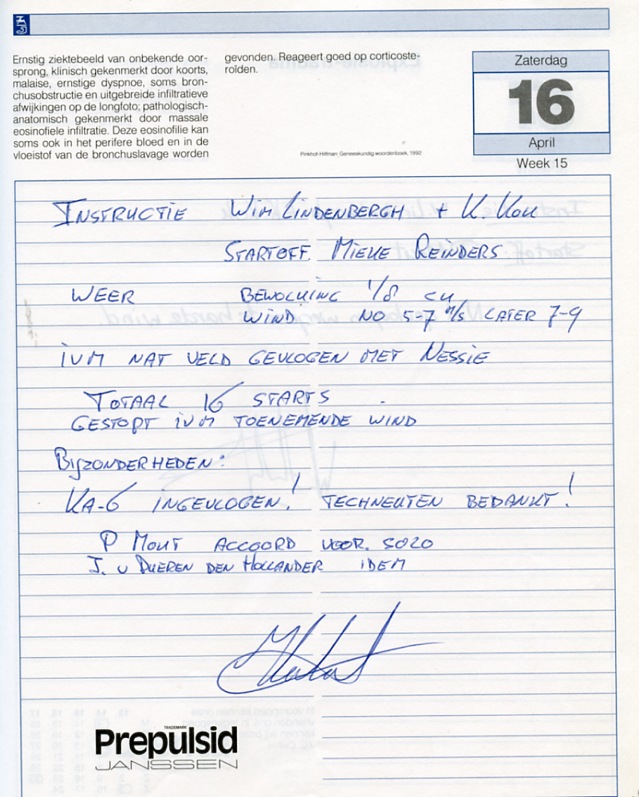 Ernstig ziektebeeld van onbekende oor-
sprong, klinisch gekenmerkt door koorts,
malaise, ernstige dyspnoe, soms bron-
chusobstructie en uitgebreide infiltratieve
afwijkingen op de longfoto; pathologisch-
anatomisch gekenmerkt door massale
eosinofiele infiltratie. Deze eosinofilie kan
soms ook in het perifere bloed en in de
vloeistof van de bronchuslavage worden
gevonden. Reageert goed op corticoste-
roïden.
Pinkhof-Hilfman: Geneeskundig woordenboek, 1992
Zaterdag
16
April
Week 15
INSTRUCTIE WIM LINDENBERGH + K. KOK
STARTOFF. MIEKE REINDERS
WEER BEWOLKING 1/8 CU
WIND NO 5-7 M/S LATER 7-9
IVM NAT VELD GEVLOGEN MET NESSIE
TOTAAL 16 STARTS
GESTOPT IVM TOENEMENDE WIND
BIJZONDERHEDEN:
KA-6 INGEVLOGEN! TECHNEUTEN BEDANKT!
P MOUT ACCOORD VOOR SOLO
J. V DUEREN DEN HOLLANDER IDEM
TRADEMARK
Prepulsid
JANSSEN